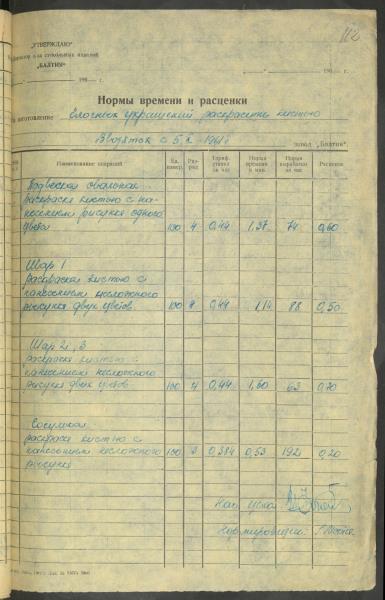 112
„УТВЕРЖДАЮ"
Директор з-да стекольных изделий
„БАЛТИЯ"
196 г.
196 г.
Нормы времени и расценки
на изготовление Елочных украшений раскраска кистью
Вводятся с 1961 г.
завод „Балтия"
Наименование операций
Ед. измер.
Раз- ряд
Тариф. ставка за час
Норма времени в мин.
Норма выработки за час
Расценок
Подвеска овальная
раскраска кистью с на-
несением рисунка одного
цвета 100 4 0,44 1,37 74 0,60
Шар 1
раскраска кистью с
нанесением несложного
рисунка двух цветов. 100 4 0,44 1,14 88 0,50
Шар 2, 3
раскраска кистью с
нанесением несложного
рисунка двух цветов 100 4 0,44 1,60 63 0,70
Сосулька
раскраска кистью с
нанесением несложного 100 3 0,384 0,53 192 0,20
рисунка
Нач. цеха
Нормировщик